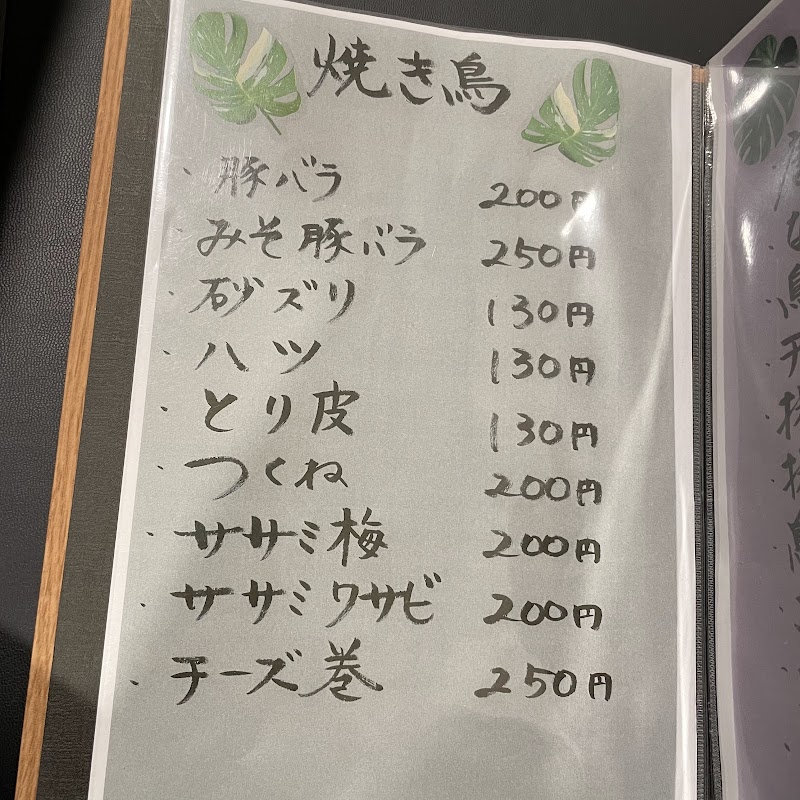 焼き鳥
・豚バラ 200円
・みそ豚バラ 250円
・砂ズリ 130円
・ハツ 130円
・とり皮 130円
・つくね 200円
・ササミ梅 200円
・ササミワサビ 200円
・チーズ巻 250円